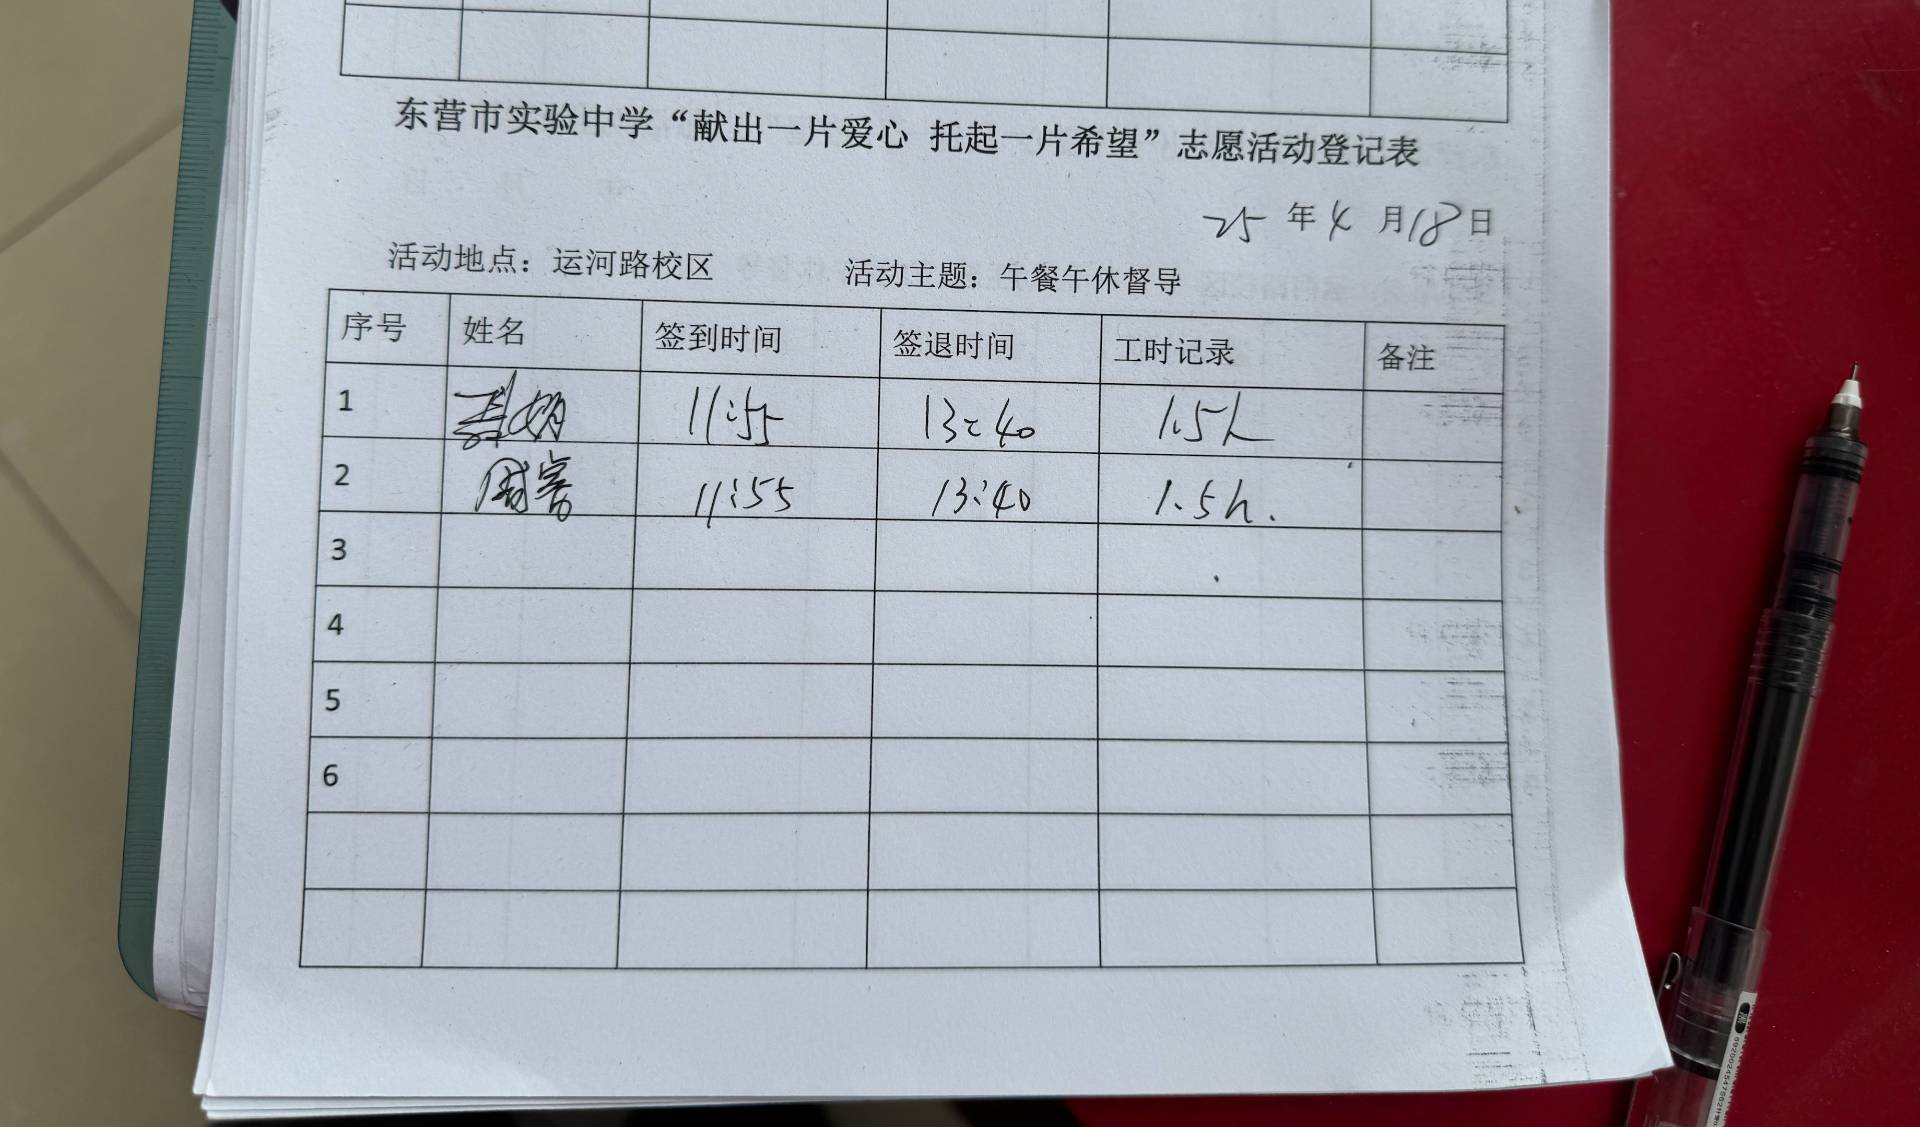 东营市实验中学“献出一片爱心 托起一片希望”志愿活动登记表
25 年 4 月 18 日
活动地点：运河路校区 活动主题：午餐午休督导
序号 姓名 签到时间 签退时间 工时记录 备注
1 11:55 13:40 1.5h
2 11:55 13:40 1.5h.
3
4
5
6